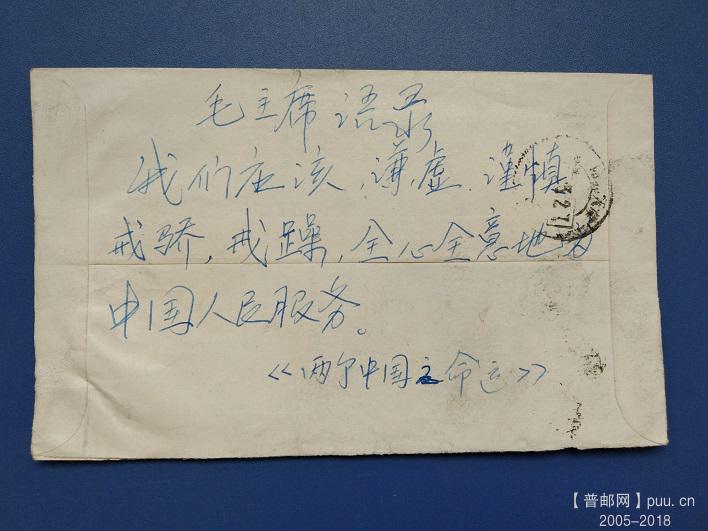 毛主席语录
我们应该,谦虚,谨慎
戒骄,戒躁,全心全意地为
中国人民服务。
《两个中国之命运》
【普邮网】puu.cn
2005-2018